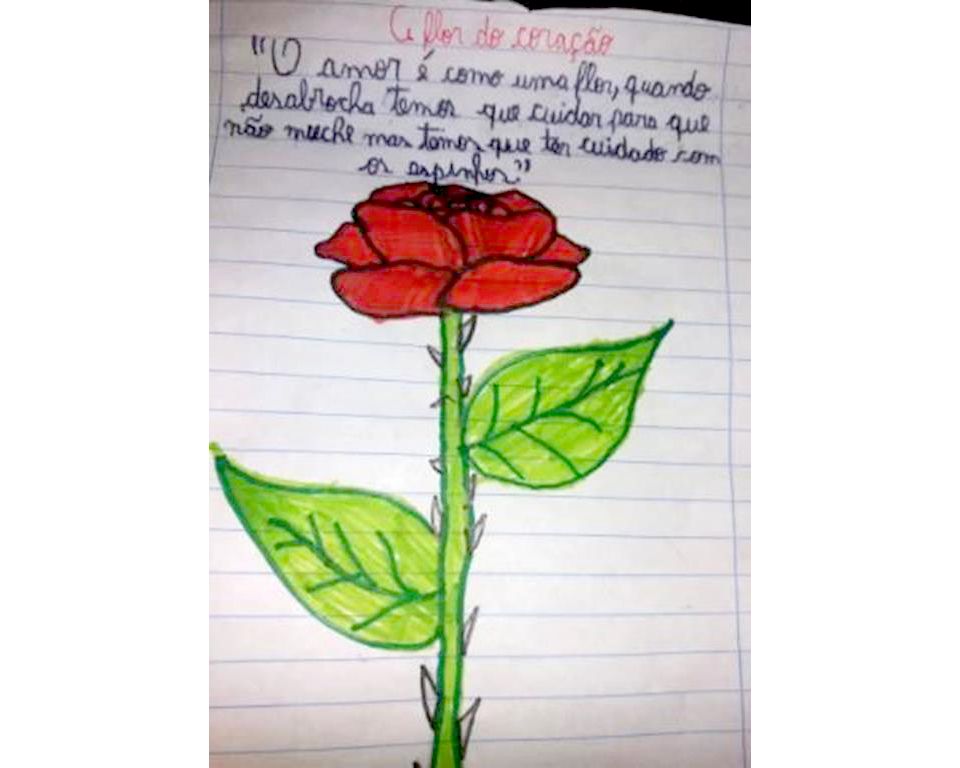 A flor do coração
"O amor é como uma flor, quando
desabrocha temos que cuidar para que
não muche mas temos que ter cuidado com
os espinhos"